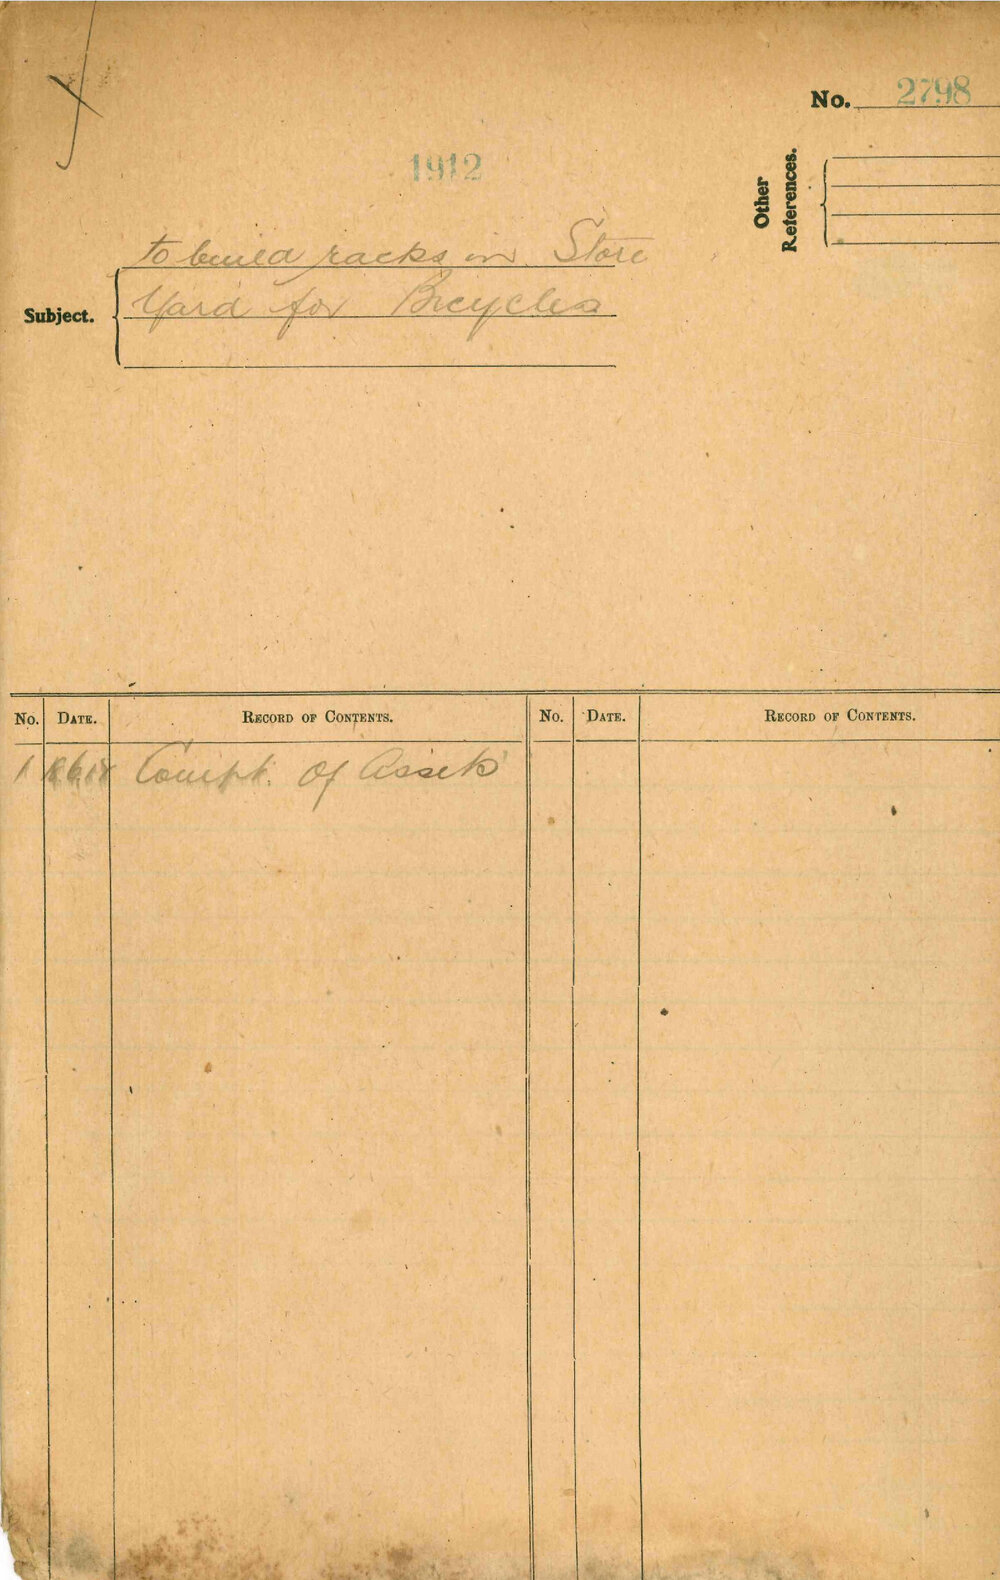 No. 2798
1912
Other
References.
to build racks in Store
Subject.
Yard for Bicycles
No. DATE. RECORD OF CONTENTS. No. DATE. RECORD OF CONTENTS.
1 Compt. of Assets